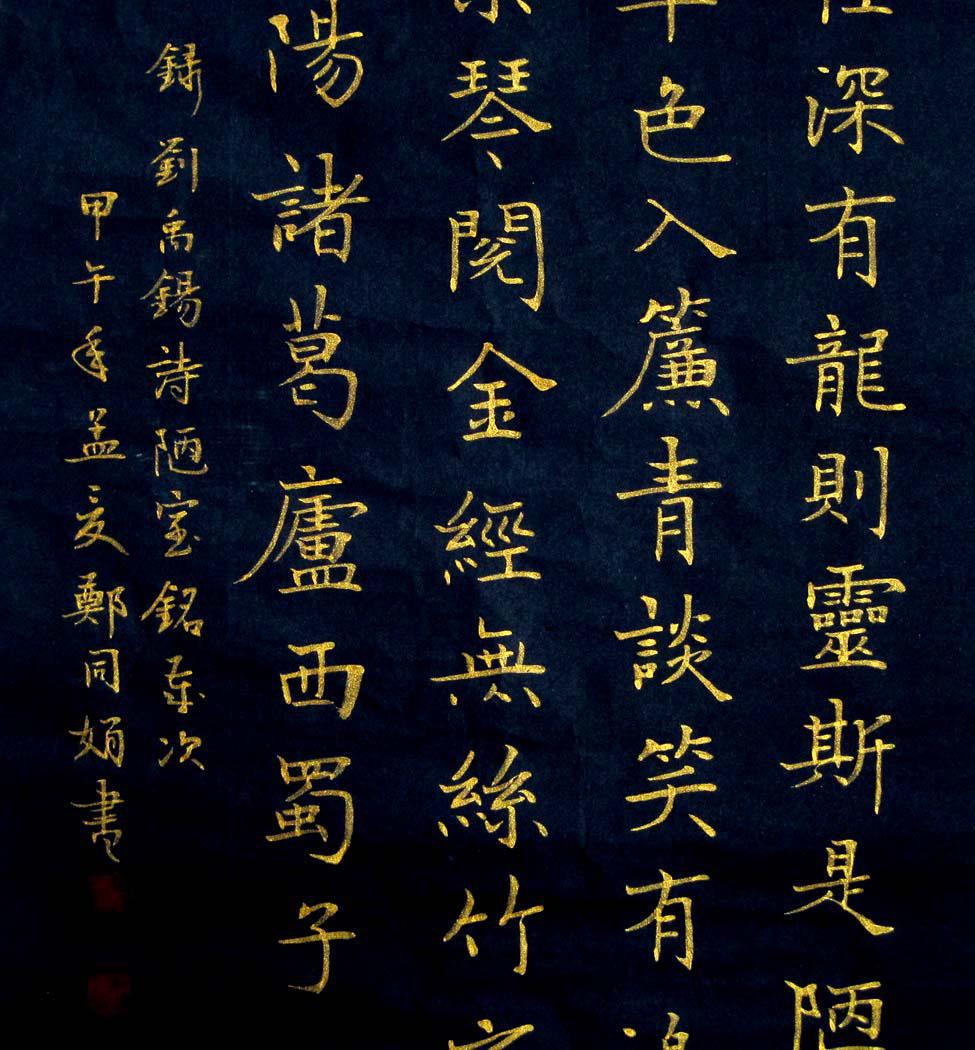 深有龍則靈斯是陋
色入簾青談笑有
琴閱金經無絲竹
陽諸葛廬西蜀子
錄劉禹錫詩陋室銘
甲午年孟夏鄭同娟書